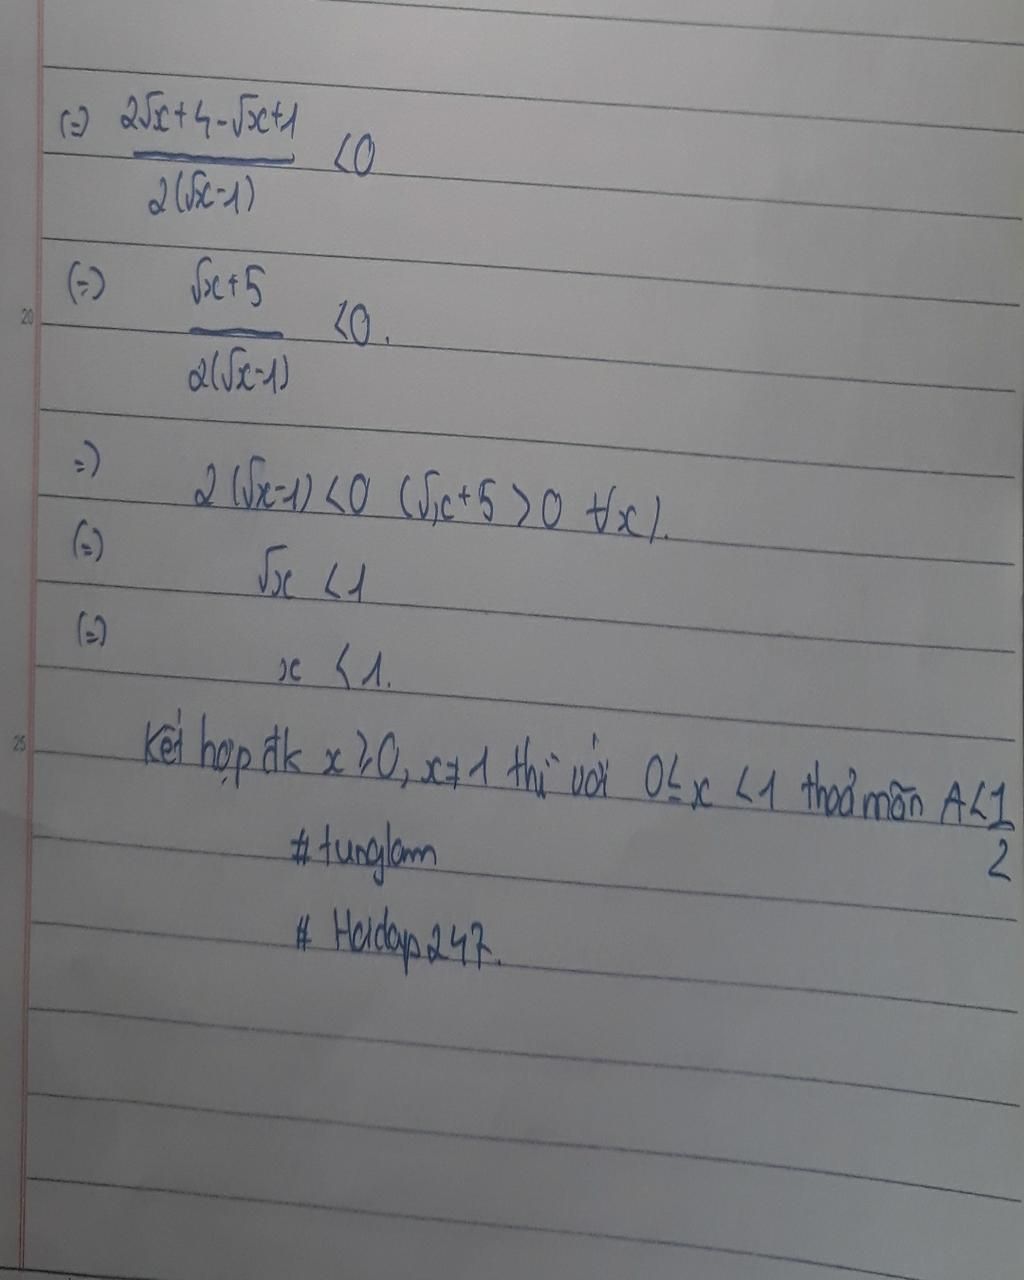 (=) 2√x+4-√x+1 / 2(√x-1) <0
20 (=) √x+5 / 2(√x-1) <0.
=) 2(√x-1)<0 (√x+5>0 ∀x).
(=) √x <1
(=) x <1.
25 Kết hợp đk x≥0, x≠1 thì với 0≤x <1 thoả mãn A<1/2
# tunglam
# Hoidap247.